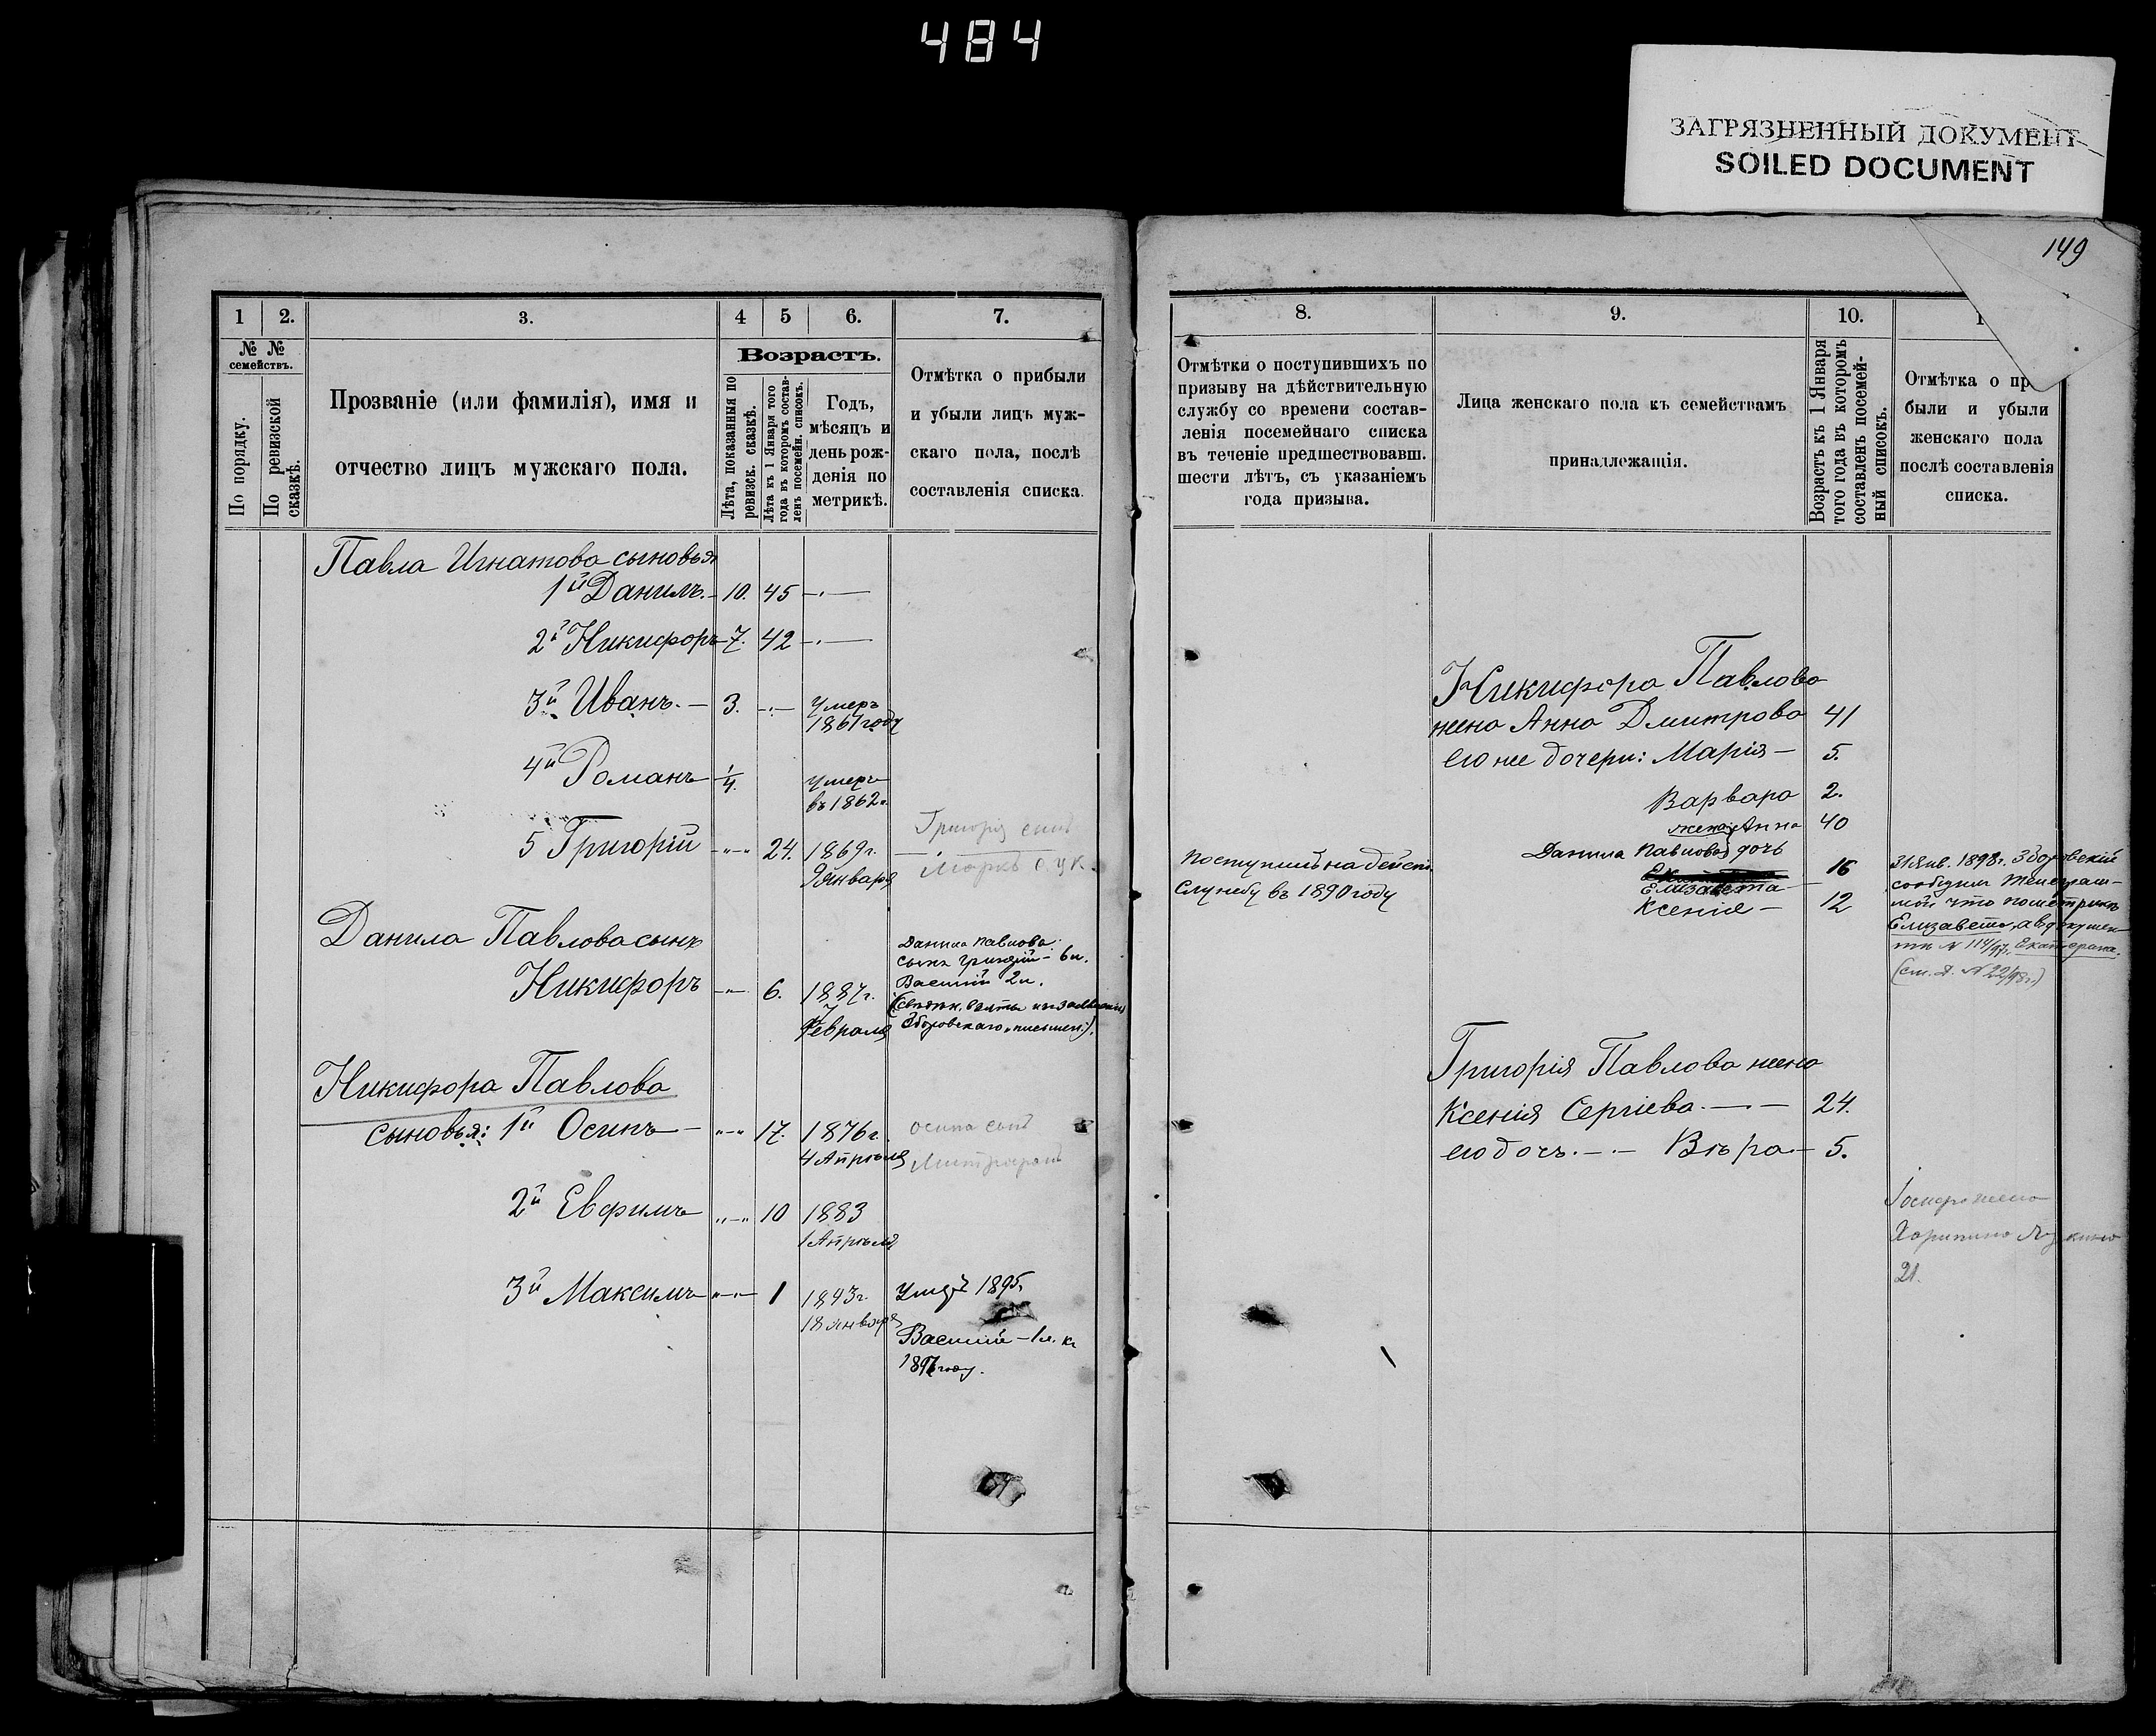 484
ЗАГРЯЗНЕННЫЙ ДОКУМЕНТ
SOILED DOCUMENT
149
1 2. 3. 4 5 6. 7.
№ № семействъ.
По порядку.
По ревизской сказкѣ.
Прозваніе (или фамилія), имя и
отчество лицъ мужскаго пола.
Возрастъ.
Лѣта, показанныя по
ревизск. сказкѣ.
Лѣта къ 1 Января того
года въ которомъ состав-
ленъ посемейн. списокъ.
Годъ,
мѣсяцъ и
день рож-
денія по
метрикѣ.
Отмѣтка о прибыли
и убыли лицъ муж-
скаго пола, послѣ
составленія списка.
Павла Игнатова сыновья
1й Данилъ. 10. 45
2й Никифоръ 7. 42
3й Иванъ. 3. Умеръ
1861 году
4й Романъ 1/4. умеръ
въ 1862 г.
Григорія сынъ
5 Григорій 24. 1869 г.
9 января
Маркъ
Данила Павлова сынъ
Никифоръ 6. 1887 г.
7
Февраля
Данила Павлова:
сынъ Григорій - 6 л.
Василій 2 л.
Зборовскаго письмен.).
Никифора Павлова
сыновья: 1й Осипъ 17. 1876 г.
4 Апрѣля
осипа сынъ
Митрофанъ
2й Евфимъ 10 1883
1 Апрѣля
3й Максимъ 1 1893 г.
18 января
Умеръ 1895.
Василій - 1 л. къ
1897 году.
8. 9. 10.
Отмѣтки о поступившихъ по
призыву на дѣйствительную
службу со времени состав-
ленія посемейнаго списка
въ теченіе предшествовавш.
шести лѣтъ, съ указаніемъ
года призыва.
Лица женскаго пола къ семействамъ
принадлежащія.
Возрастъ къ 1 Января
того года въ которомъ
составленъ посемей-
ный списокъ.
Отмѣтка о пр
были и убыли
женскаго пола
послѣ составленія
списка.
Никифора Павлова
жена Анна Дмитрова 41
его же дочери: Марія 5.
Варвара 2.
жена Анна 40
Данила Павлова дочь
Елизавета 16
Ксенія 12
Поступилъ на дѣйств.
службу въ 1890 году
31 Янв. 1898 г. Зборовскій
сообщилъ телеграм-
мой что по метрикѣ
Елизавета, а въ докумен-
тѣ № 114/97, Екатерина.
(см. д. № 22/98 г.)
Григорія Павлова жена
Ксенія Сергіева. 24.
его дочь. Вѣра 5.
жена
21.